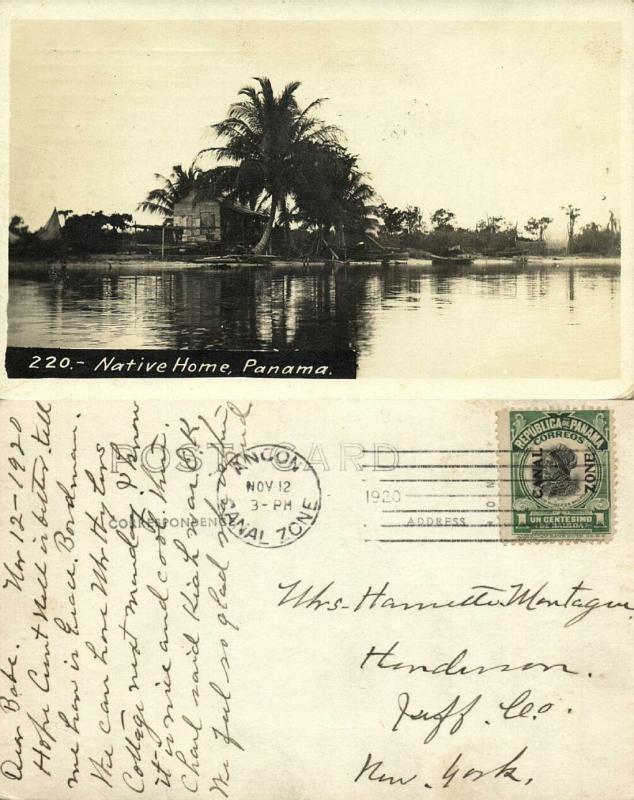 220.- Native Home, Panama.
POST CARD
CORRESPONDENCE
ADDRESS
ANCON
NOV 12
3-PM
CANAL ZONE
1920
REPUBLICA DE PANAMA
CORREOS
CANAL ZONE
1 UN CENTESIMO 1
DE BALBOA
Nov 12-1920
Dear Babe.
Hope Aunt Nell is better tell
me how is Grace Boardman.
We can have Worthy Lons
Cottage next monday I know
it is nice and cooly there.
Charl said Hiah was O.K
We feel so glad she is in
Mrs- Harriette Montague
Henderson.
Jeff. Co.
New- York.